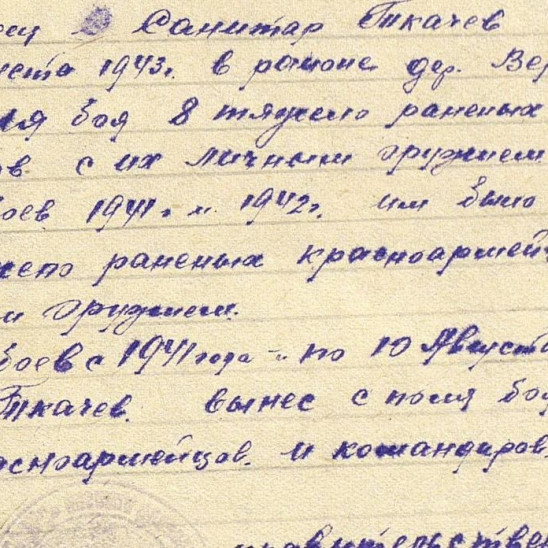 Санитар Ткачев
1943г. в районе дер. Вер
боя 8 тяжело раненых
ов. с их личным оружием
боев 1941г. и 1942г. им было
жело раненых красноармей
и оружием.
боев с 1941 года - по 10 Августа
Ткачев. вынес с поля боя
расноармейцов. и командиров
правительствен